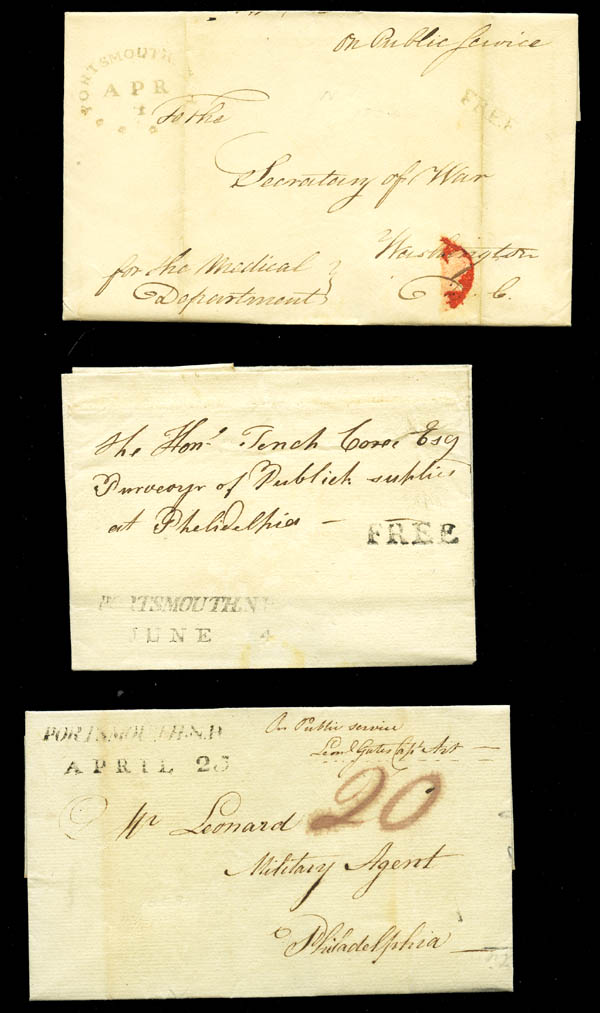 On Public Service
PORTSMOUTH.N
APR
1
FREE
To the
Secretary of War
Washington
D. C.
for the Medical }
Department }
the Honl. Tench Coxe Esq
Purveoyr of Publick supplies
at Pheledelpia —
FREE
PORTSMOUTH.N.H
JUNE 4
PORTSMOUTH.N.H
APRIL 25
On Public service
Leond. Gates Capt. Art —
20
Mr Leonard
Military Agent
Philadelphia —